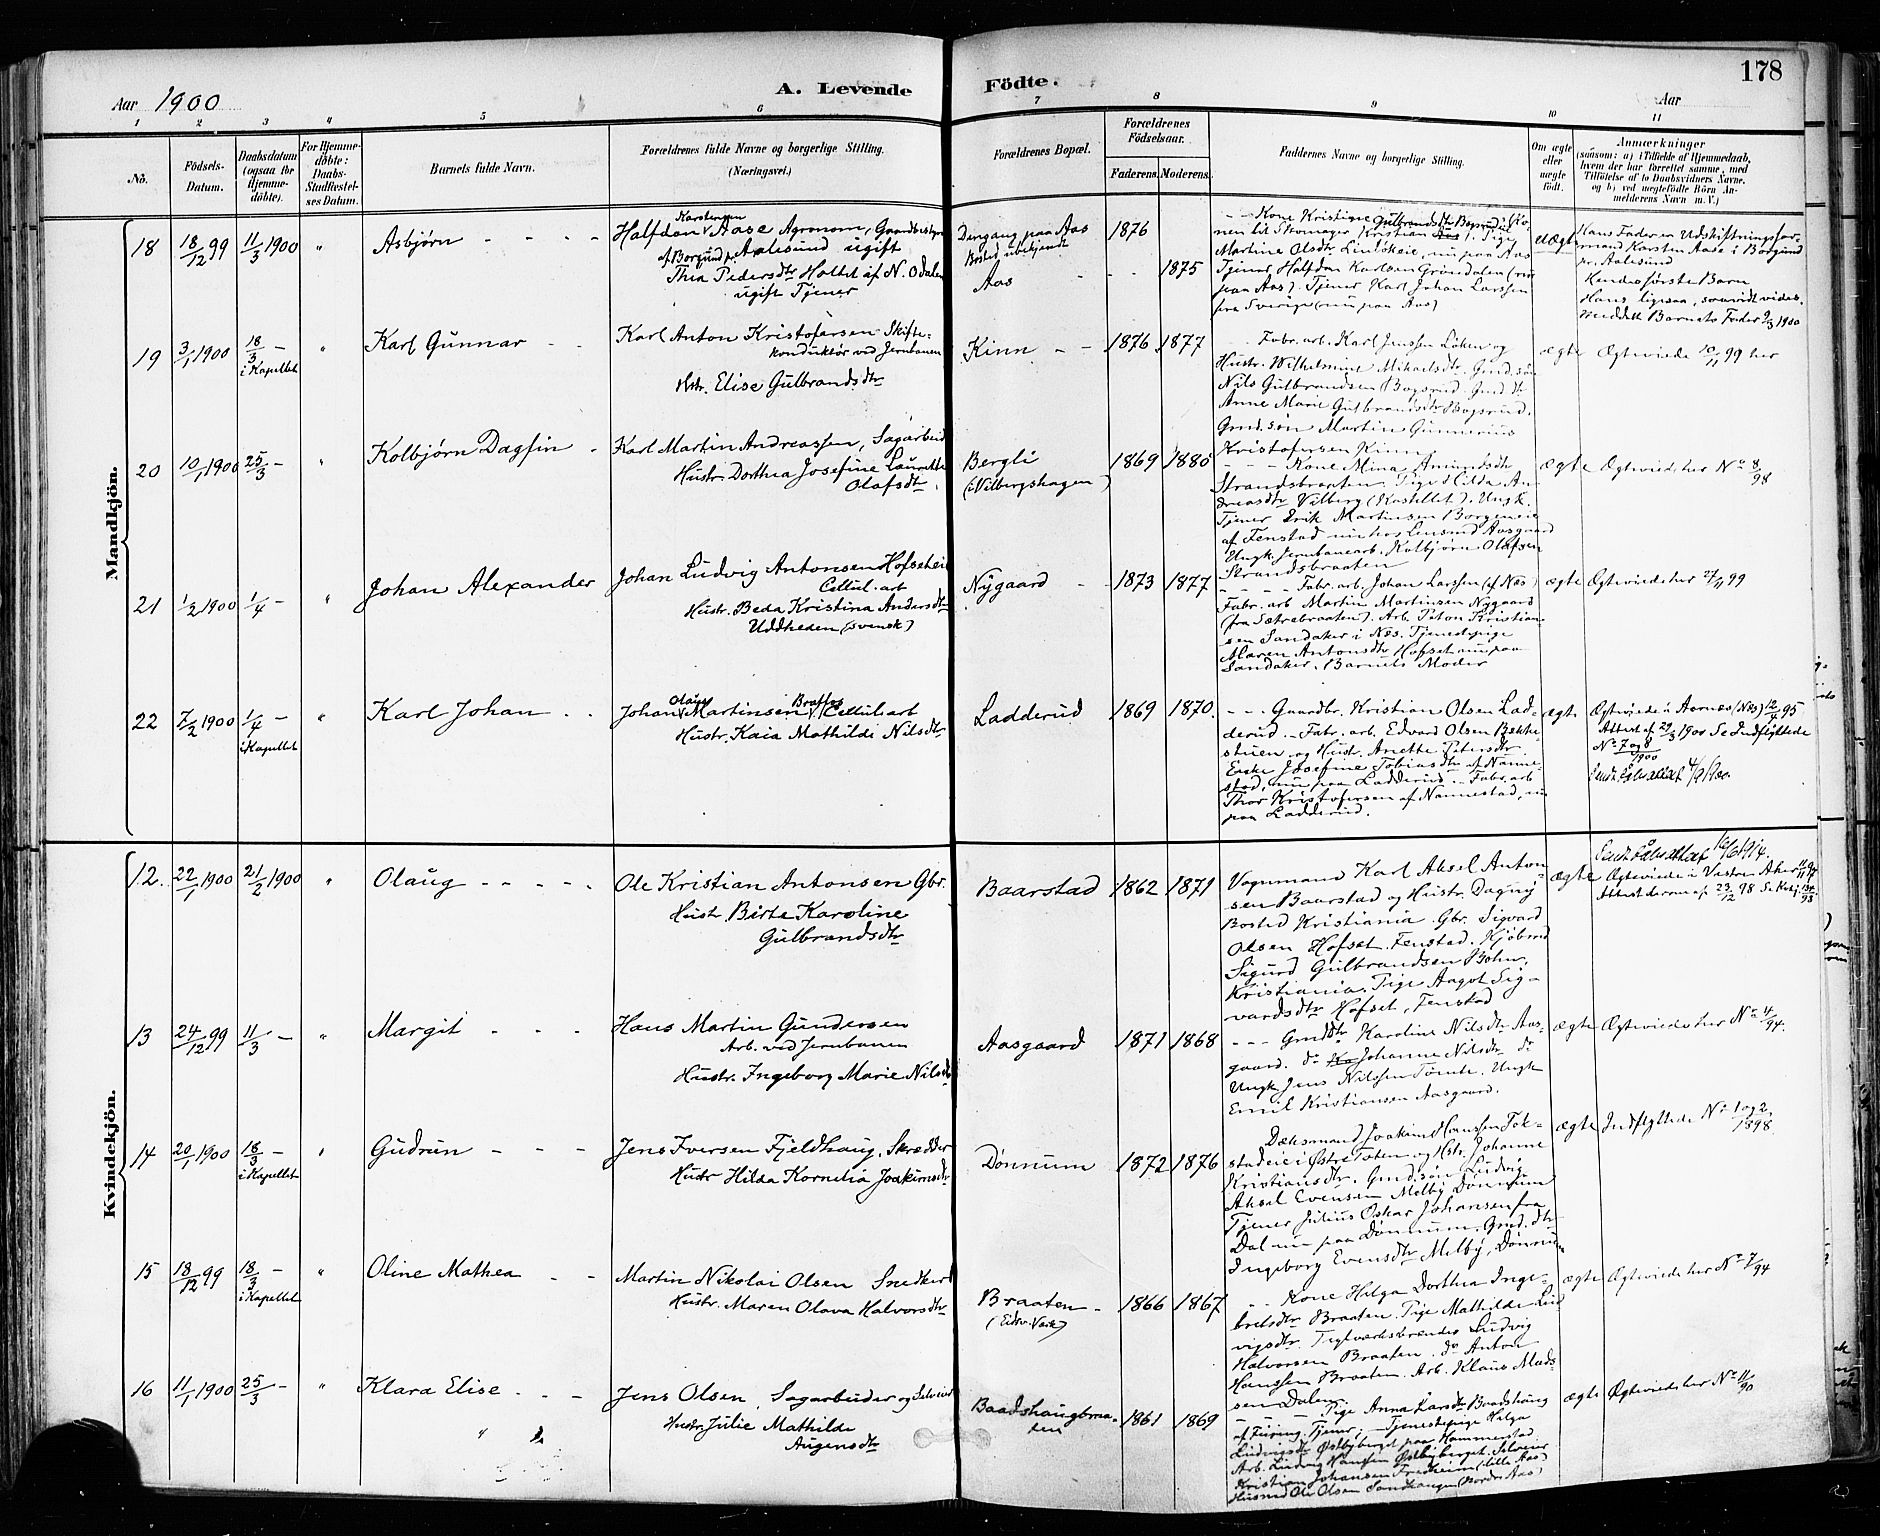 178
Aar 1900
A. Levende Fødte.
Aar
1 2 3 4 5 6 7 8 9 10 11
No.
Fødsels-Datum.
Daabsdatum (ogsaa for Hjemme-døbte).
For Hjemme-døbte: Daabs-Stadfæstel-ses Datum.
Barnets fulde Navn.
Forældrenes fulde Navne og borgerlige Stilling. (Næringsvei.)
Forældrenes Bopæl.
Forældrenes Fødselsaar.
Faderens. Moderens.
Faddernes Navne og borgerlige Stilling.
Om ægte eller uægte født.
Anmærkninger
(saasom: a) i Tilfælde af Hjemmedaab,
hvem der har forrettet samme, med
Tilføielse af to Daabsvidners Navne,
og b) ved uegtefødte Børn An-
melderens Navn m. V.)
Mandkjön.
18 18/12 99 11/3 1900 " Asbjørn
Halfdan Karstensen Aase Agronom, Gaardbestyrer
af Borgund pr. Aalesund ugift
Thea Pedersdtr Holtet af N. Odalen
ugift Tjener
Dengang paa Aas
Bosted ubekjendt
Aas
1876
1875
Kone Kristine Gulbrandsdtr Bogsrud (Ko-
nen til Skomager Kristian Aas). Pige
Martine Olsdtr Lindskeie, nu paa Aas
Tjener Halfdan Karlsen Grøndalen (nu
paa Aas). Tjener Karl Johan Larssen
fra Sverige (nu paa Aas)
uægte
Hans Fader er Udskiftningsfor-
mand Karsten Aase i Borgund
pr. Aalesund
Hendes første Barn
Hans ligesaa, saavidt vides.
meddelt Barnets Fader 9/3 1900
19 3/1 1900 18/3 – i Kapellet " Karl Gunnar
Karl Anton Kristofersen Skifte-
konduktør ved Jernbanen
Hstr. Elise Gulbrandsdtr
Kinn
1876 1877
Fabr. arb. Karl Jenssen Løken og
Hustr. Wilhelmine Mikaelsdtr. Gmd. søn
Nils Gulbrandsen Bogsrud. Gmd. dtr
Anne Marie Gulbrandsdtr Bogsrud.
Gmd. søn Martin Gunnerius
Kristofersen Kinn
ægte
Ægteviede 10/11 99 her
20 10/1 1900 25/3 – " Kolbjørn Dagfin
Karl Martin Andreassen, Sagarbeid
Hustr. Dorthea Josefine Laurette
Olafsdtr.
Bergli
(i Vilbergshagen)
1869 1880
Kone Mina Amundsdtr
Strandsbraaten. Pige Hilda An-
dreasdtr Vilberg (Kastellet). Ungk.
Tjener Erik Martinsen Borgeneie
af Fenstad nu hos Lensmd Aasgaard
Ungk. Jernbanearb. Kolbjørn Olafsen
Strandsbraaten
ægte
Ægteviede her No 8/98
21 1/2 1900 1/4 – " Johan Alexander
Johan Ludvig Antonsen Hofseteie
Cellul. arb
Hustr. Beda Kristina Andersdtr
Uddheden (svensk)
Nygaard
1873 1877
Fabr. arb. Johan Larssen (af Næs)
Fabr. arb Martin Martinsen Nygaard
(fra Sætrebraaten). Arb. Peton Kristian-
sen Sandaker i Næs. Tjenestepige
Maren Antonsdtr Hofset nu paa
Sandaker. Barnets Moder
ægte
Ægteviede her 27/11 99
22 7/2 1900 1/4 – i Kapellet " Karl Johan
Johan Olaus Martinsen Braften Cellul. arb
Hustr. Kaia Mathilde Nilsdtr
Ladderud
1869 1870.
Gaardbr. Kristian Olsen Lad-
derud. – Fabr. arb. Edvard Olsen Bekke-
stuen og Hustr. Anette Petersdtr.
Enke Josefine Tobiasdtr af Nanne-
stad, nu paa Ladderud. – Fabr. arb
Thor Kristofersen af Nannestad, nu
paa Ladderud.
ægte
Ægteviede i Aarnes (Næs) 12/4 95
Attest af 29/3 1900 Se Indflyttede
No 7 og 8/1900
Kvindekjön.
12. 22/1 1900 21/2 1900 " Olaug
Ole Kristian Antonsen Gbr.
Hustr. Birte Karoline
Gulbrandsdtr
Baarstad
1862 1871
Vognmand Karl Aksel Anton-
sen Baarstad og Hustr. Dagny
Bosted Kristiania. Gbr. Sigvard
Olsen Hofset. Fenstad. Kjøbmd
Sigurd Gulbrandsen Bohn,
Kristiania. Pige Aagot Sig-
vardsdtr Hofset, Fenstad
ægte
Ægteviede i Vestre Aker
Attest derom af 23/12 98
13 24/12 99 11/3 – " Margit
Hans Martin Gundersen
Arb. ved Jernbanen
Hustr. Ingeborg Marie Nilsdtr
Aasgaard
1871 1868
Gmddtr Karoline Nilsdtr Aas-
gaard. do Johanne Nilsdtr do
Ungk Jens Nilssen Tømte. Ungk
Emil Kristiansen Aasgaard.
ægte
Ægteviede her No 4/94.
14 20/1 1900 18/3 – i Kapellet " Gudrun
Jens Iversen Fjeldhaug, Skrædder
Hustr Hilda Kornelia Joakimsdtr
Dønnum
1872 1876
Dæksmand Joakim Hanssen Fok-
stadeie i Østre Toten og Hstr. Johanne
Kristiansdtr. Gmd. søn Ludvig
Aksel Evensen Melby Dønnum
Tjener Julius Oskar Johansen fra
Dal nu paa Dønnum. Gmd. dtr
Ingeborg Evensdtr Melby, Dønnum
ægte
Indflyttede No 1 og 2/1898
15 18/12 99 18/3 – i Kapellet " Oline Mathea
Martin Nikolai Olsen Snedker
Hustr. Maren Olava Halvorsdtr
Braaten
(Eidsv. Værk)
1866 1867
Kone Helga Dorthea Inge-
bretsdtr Braaten. Pige Mathilde Lud
vigsdtr. Teglværksbrænder Ludvig
Halvorsen Braaten. do Anton
Hanssen Braaten. Arb. Klaus Mads-
sen Dalen
ægte
Ægteviede her No 7/94
16 11/1 1900 25/3 – " Klara Elise
Jens Olsen, Sagarbeider og Selveier
Hustr Julie Mathilde
Augensdtr
Baadshaugbraa-
ten
1861 1869
Pige Anna Larsdtr Baadshaug
af Furing. Tjener, – Tjenestepige Helga
Ludvigsdtr Østbyberget paa Hammerstad
Arb. Ludvig Hanssen Østbyberget. Selveier
Kristian Johansen Fredheim (lille Aas)
Husmd Ole Olsen Sandhaugen (Nordre Aas)
ægte
Ægteviede her No 11/90